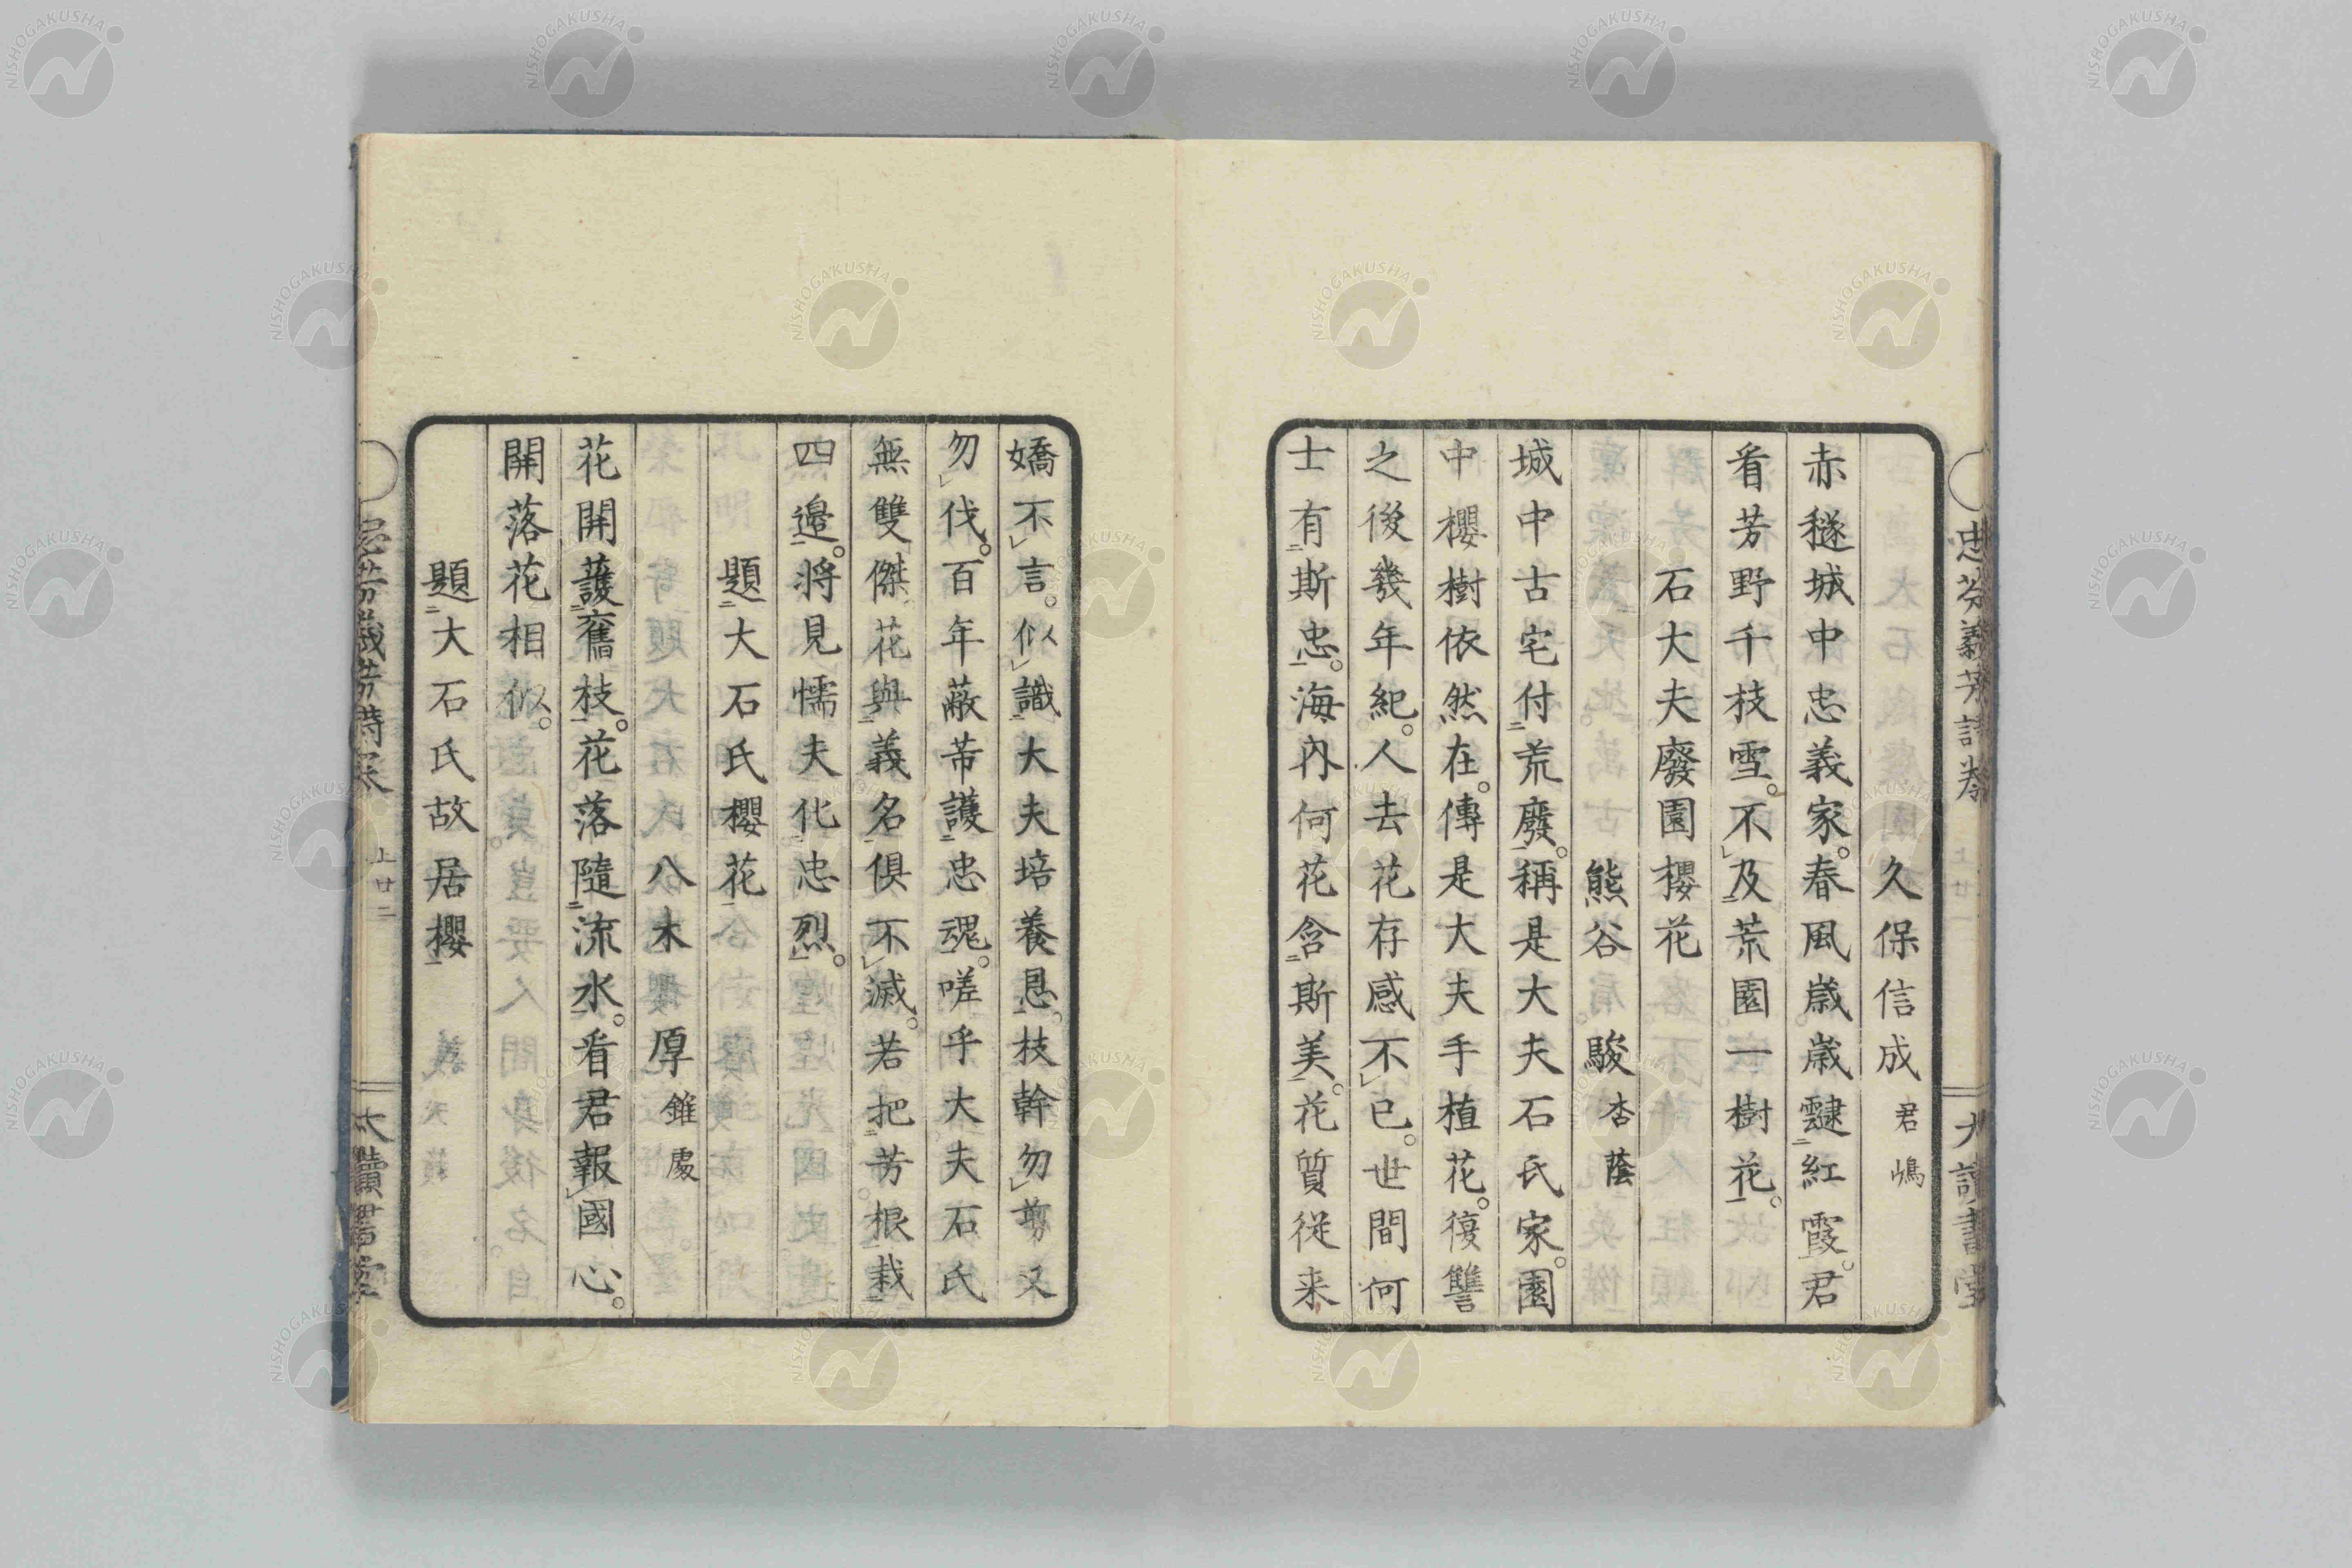 久保信成 君嶋
赤穟城中忠義家。春風歲歲靆紅霞。君
看芳野千枝雪。不及荒園一樹花。
石大夫廢園櫻花
熊谷駿 杏蔭
城中古宅付荒廢。稱是大夫石氏家。園
中櫻樹依然在。傳是大夫手植花。復讐
之後幾年紀。人去花存感不已。世間何
士有斯忠。海內何花含斯美。花質從来
嬌不言。似識大夫培養恩。枝幹勿剪又
勿伐。百年蔽芾護忠魂。嗟乎大夫石氏
無雙傑。花與義名俱不滅。若把芳根栽
四邉。將見懦夫化忠烈。
題大石氏櫻花
八木厚 錐處
花開護舊枝。花落隨流水。看君報國心。
開落花相似。
題大石氏故居櫻
忠芬義芳詩卷 上廿二
大讀書堂